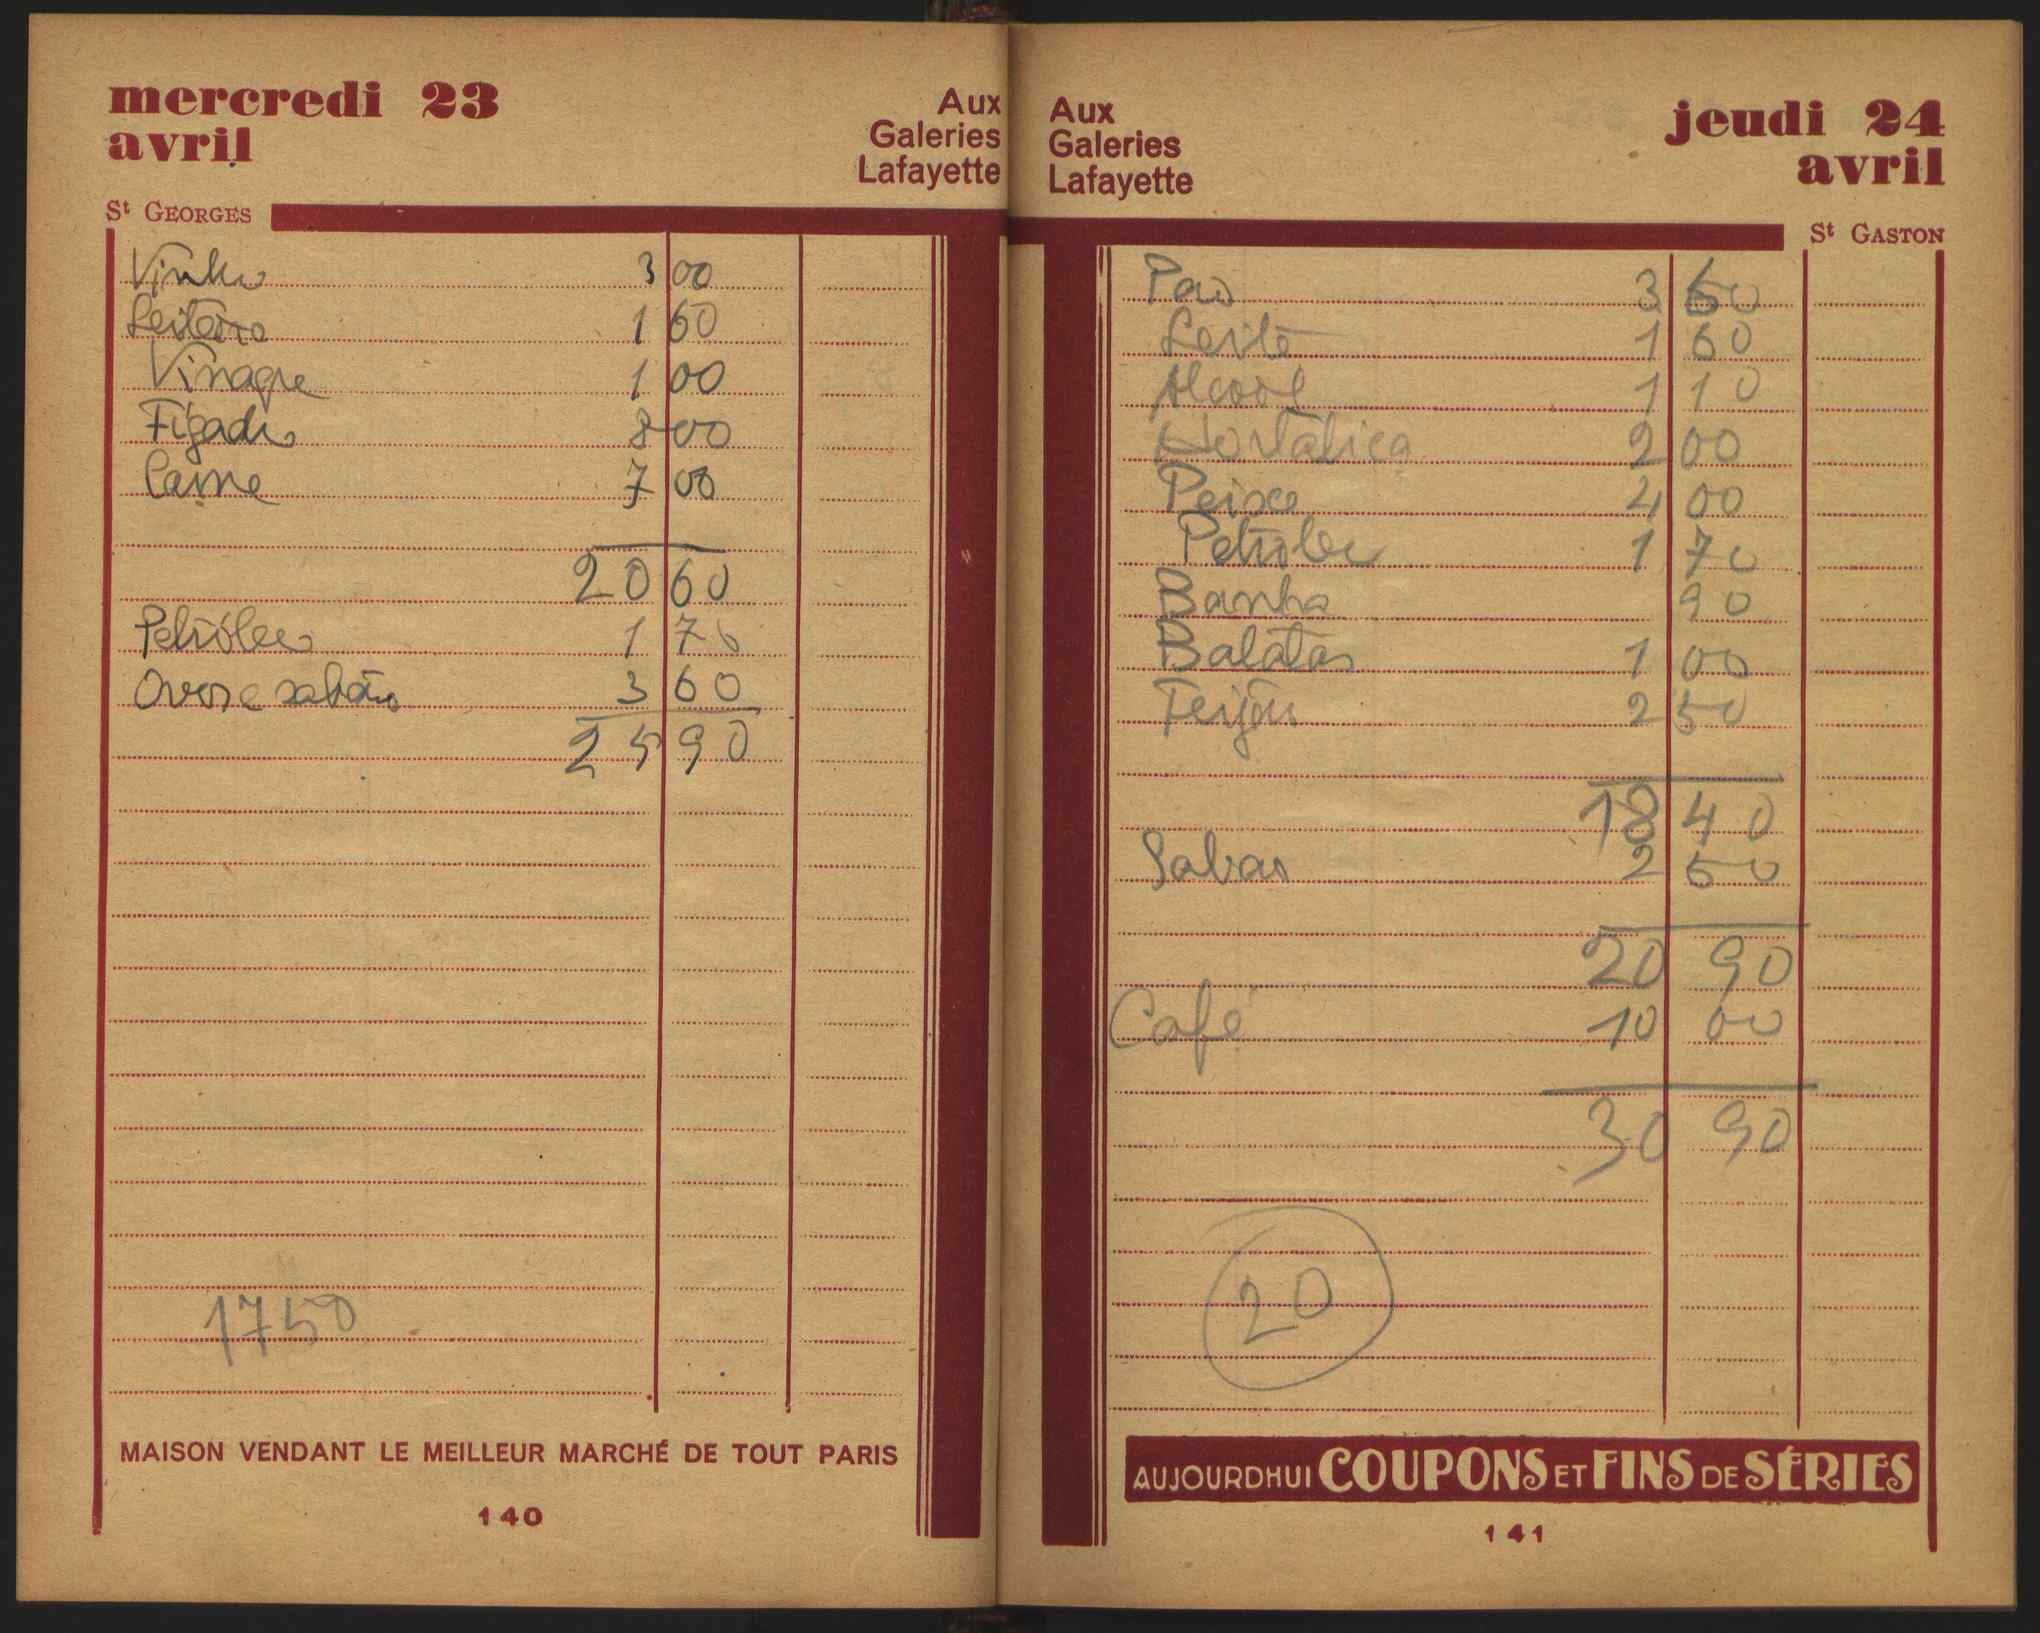 mercredi 23
avril
Aux
Galeries
Lafayette
St GEORGES
Vinho 3 00
Leiteiro 1 60
Vinagre 1 00
Fígado 8 00
Carne 7 00
20 60
Petróleo 1 70
Ovos e sabão 3 60
25 90
1750
MAISON VENDANT LE MEILLEUR MARCHÉ DE TOUT PARIS
140
Aux
Galeries
Lafayette
jeudi 24
avril
St GASTON
Pao 3 60
Leite 1 60
Alcool 1 10
Hortaliça 2 00
Peixe 4 00
Petróleo 1 70
Banha 90
Batatas 1 00
Feijão 2 50
18 40
Sabao 2 50
20 90
Café 10 00
30 90
20
AUJOURDHUI COUPONS ET FINS DE SÉRIES
141